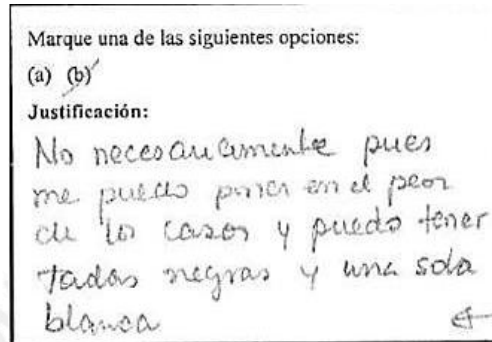 Marque una de las siguientes opciones:
(a) (b)
Justificación:
No necesariamente pues
me puedo poner en el peor
de los casos y puedo tener
todas negras y una sola
blanca